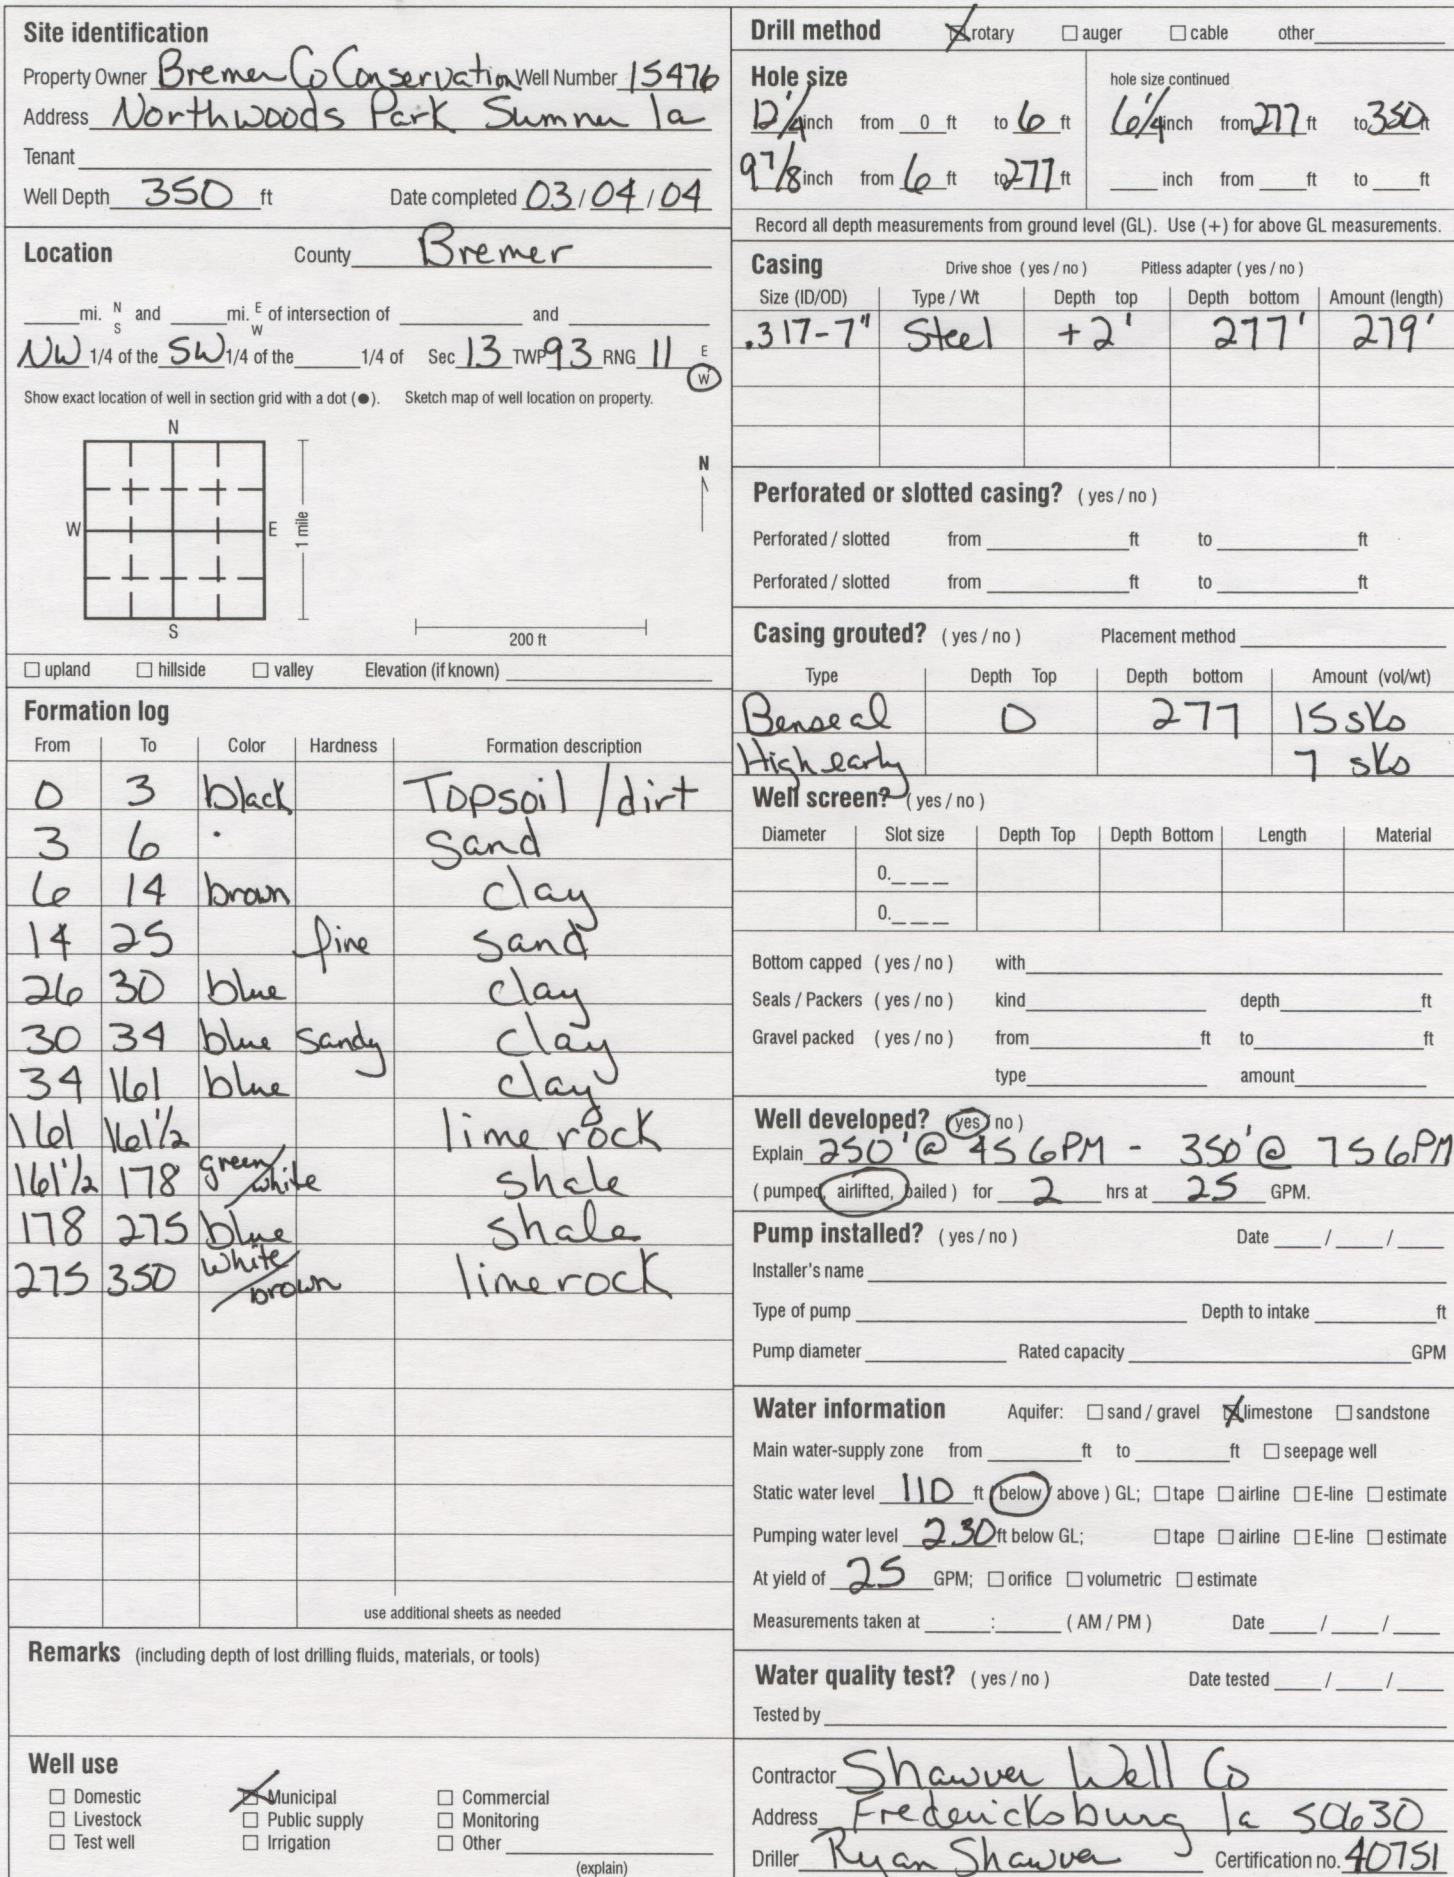 Site identification
Property Owner Bremer Co Conservation Well Number 15476
Address Northwoods Park Sumner Ia
Tenant
Well Depth 350 ft Date completed 03/04/04
Location County Bremer
mi. N S and mi. E W of intersection of and
NW 1/4 of the SW 1/4 of the 1/4 of Sec 13 TWP 93 RNG 11 E W
Show exact location of well in section grid with a dot (●). Sketch map of well location on property.
N
N
W E
1 mile
S
200 ft
☐ upland ☐ hillside ☐ valley Elevation (if known)
Formation log
From To Color Hardness Formation description
0 3 black Topsoil / dirt
3 6 sand
6 14 brown clay
14 25 fine sand
26 30 blue clay
30 34 blue sandy clay
34 161 blue clay
161 161 1/2 lime rock
161 1/2 178 green/white shale
178 275 blue shale
275 350 white/brown limerock
use additional sheets as needed
Remarks (including depth of lost drilling fluids, materials, or tools)
Well use
☐ Domestic ☒ Municipal ☐ Commercial
☐ Livestock ☐ Public supply ☐ Monitoring
☐ Test well ☐ Irrigation ☐ Other
(explain)
Drill method ☒ rotary ☐ auger ☐ cable other
Hole size hole size continued
12 1/4 inch from 0 ft to 6 ft 6 1/4 inch from 277 ft to 350 ft
9 7/8 inch from 6 ft to 277 ft inch from ft to ft
Record all depth measurements from ground level (GL). Use (+) for above GL measurements.
Casing Drive shoe (yes / no) Pitless adapter (yes / no)
Size (ID/OD) Type / Wt Depth top Depth bottom Amount (length)
.317-7" Steel +2' 277' 279'
Perforated or slotted casing? (yes / no)
Perforated / slotted from ft to ft
Perforated / slotted from ft to ft
Casing grouted? (yes / no) Placement method
Type Depth Top Depth bottom Amount (vol/wt)
Benseal 0 277 15 sks
High early 7 sks
Well screen? (yes / no)
Diameter Slot size Depth Top Depth Bottom Length Material
0._ _ _
0._ _ _
Bottom capped (yes / no) with
Seals / Packers (yes / no) kind depth ft
Gravel packed (yes / no) from ft to ft
type amount
Well developed? (yes / no)
Explain 250' @ 45 GPM - 350' @ 75 GPM
(pumped, airlifted, bailed) for 2 hrs at 25 GPM.
Pump installed? (yes / no) Date / /
Installer's name
Type of pump Depth to intake ft
Pump diameter Rated capacity GPM
Water information Aquifer: ☐ sand / gravel ☒ limestone ☐ sandstone
Main water-supply zone from ft to ft ☐ seepage well
Static water level 110 ft (below / above) GL; ☐ tape ☐ airline ☐ E-line ☐ estimate
Pumping water level 230 ft below GL; ☐ tape ☐ airline ☐ E-line ☐ estimate
At yield of 25 GPM; ☐ orifice ☐ volumetric ☐ estimate
Measurements taken at : (AM / PM) Date / /
Water quality test? (yes / no) Date tested / /
Tested by
Contractor Shawver Well Co
Address Fredericksburg Ia 50630
Driller Ryan Shawver Certification no. 40751